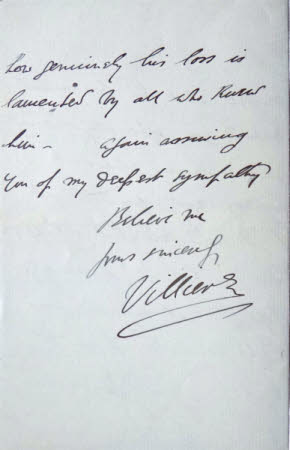 how genuinely his loss is
lamented by all who knew
him - Again assuring
you of my deepest sympathy
Believe me
yours sincerely
Villiers